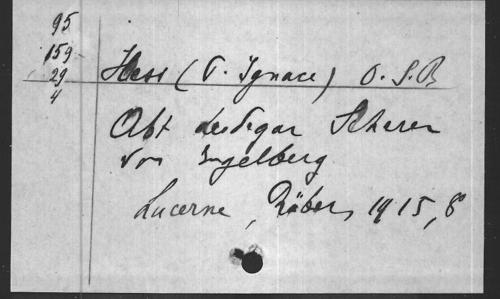 95
159
29
4
Hess (P. Ignace) O.S.B
Abt Leodegar Scherer
von Engelberg
Lucerne, Räber, 1915, 8